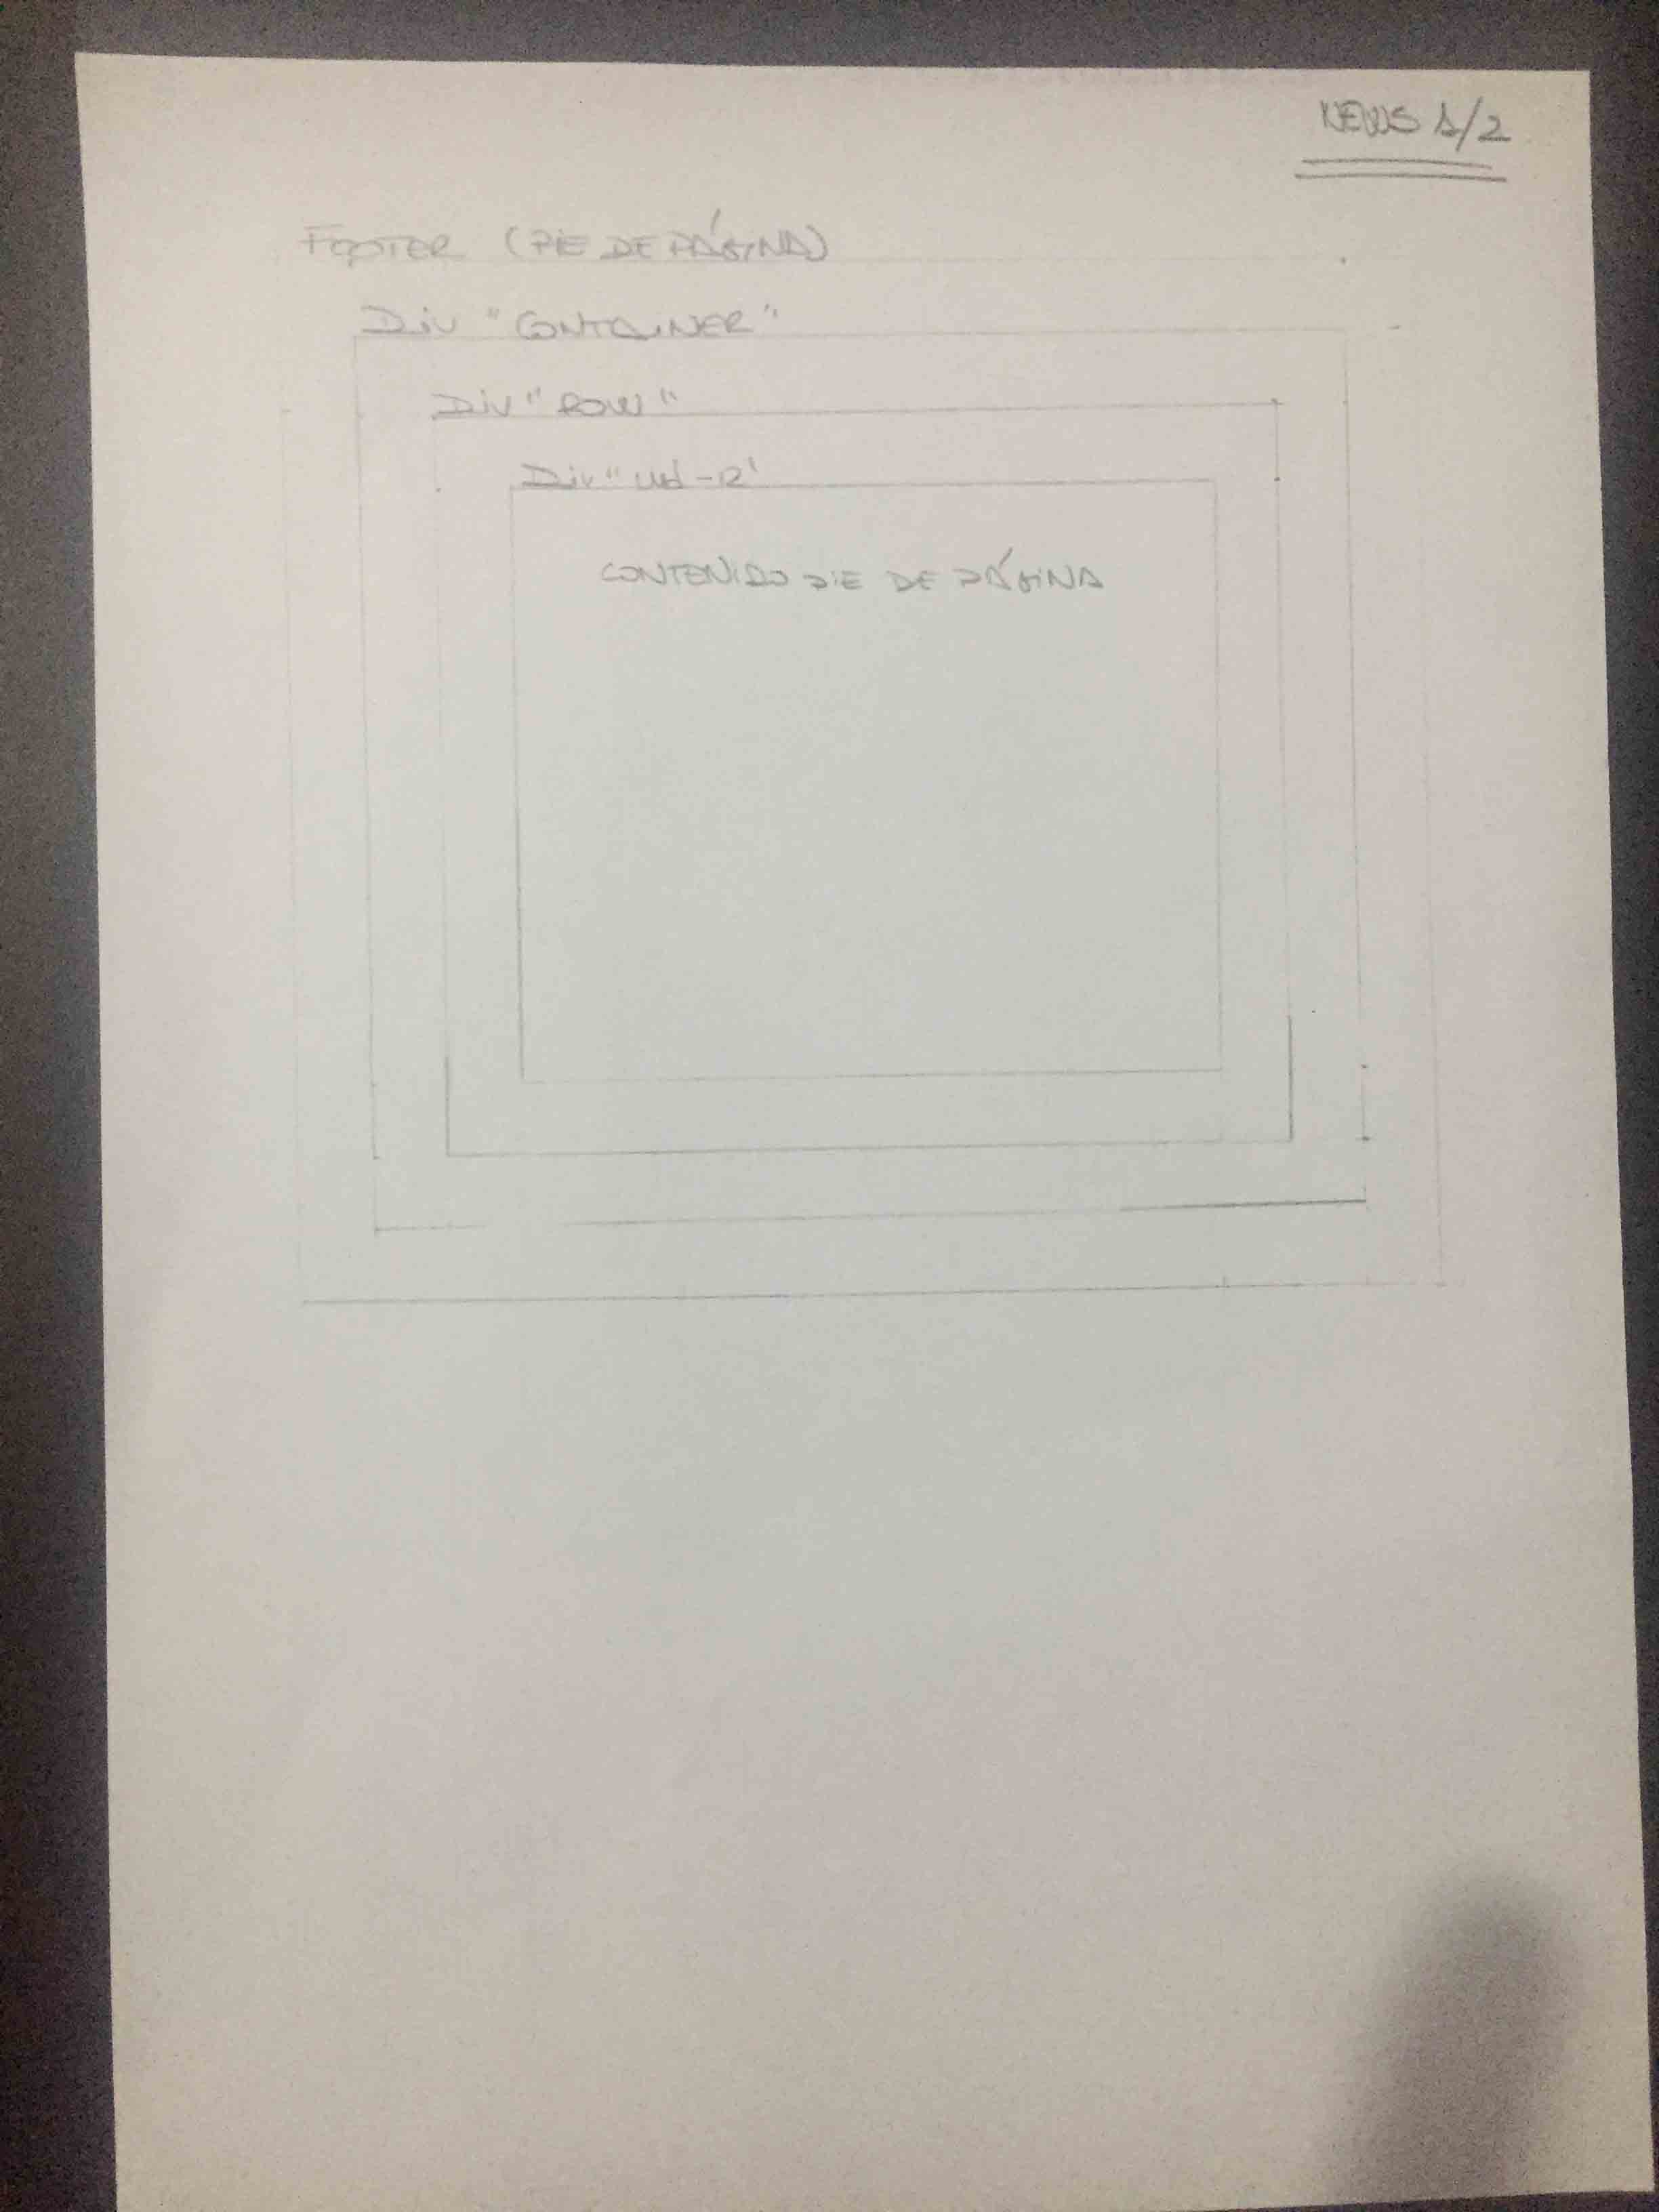 NEWS 1/2
FOOTER (PIE DE PÁGINA)
Div "CONTAINER"
Div "ROW"
Div "Md-12"
CONTENIDO PIE DE PÁGINA